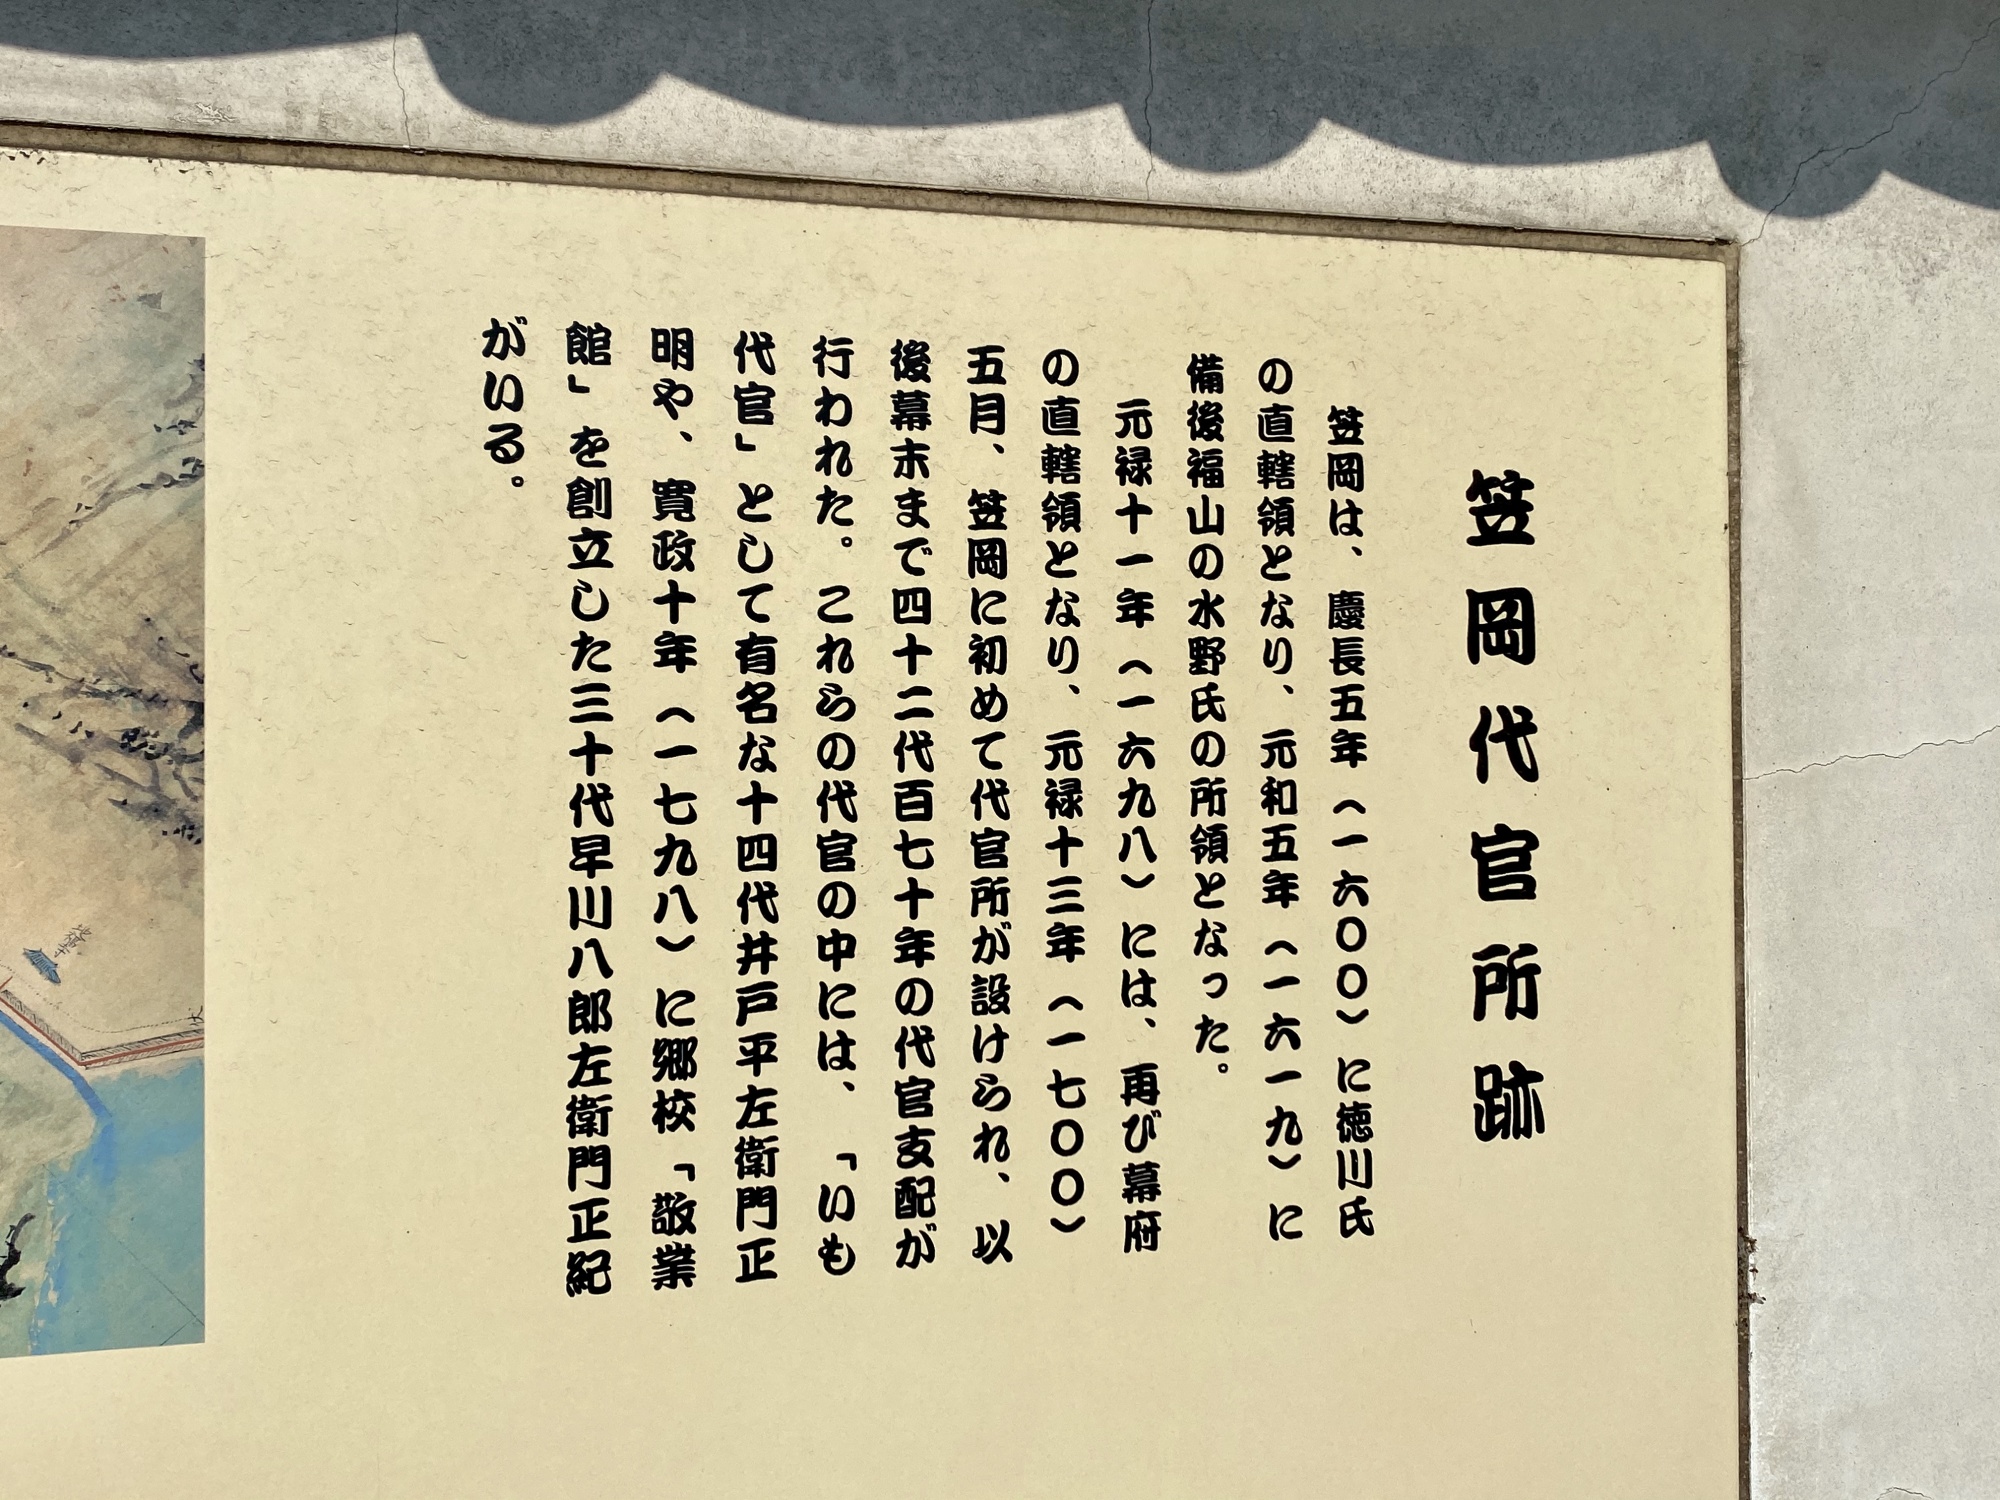 笠岡代官所跡
笠岡は、慶長五年（一六〇〇）に徳川氏
の直轄領となり、元和五年（一六一九）に
備後福山の水野氏の所領となった。
元禄十一年（一六九八）には、再び幕府
の直轄領となり、元禄十三年（一七〇〇）
五月、笠岡に初めて代官所が設けられ、以
後幕末まで四十二代百七十年の代官支配が
行われた。これらの代官の中には、「いも
代官」として有名な十四代井戸平左衛門正
明や、寛政十年（一七九八）に郷校「敬業
館」を創立した三十代早川八郎左衛門正紀
がいる。